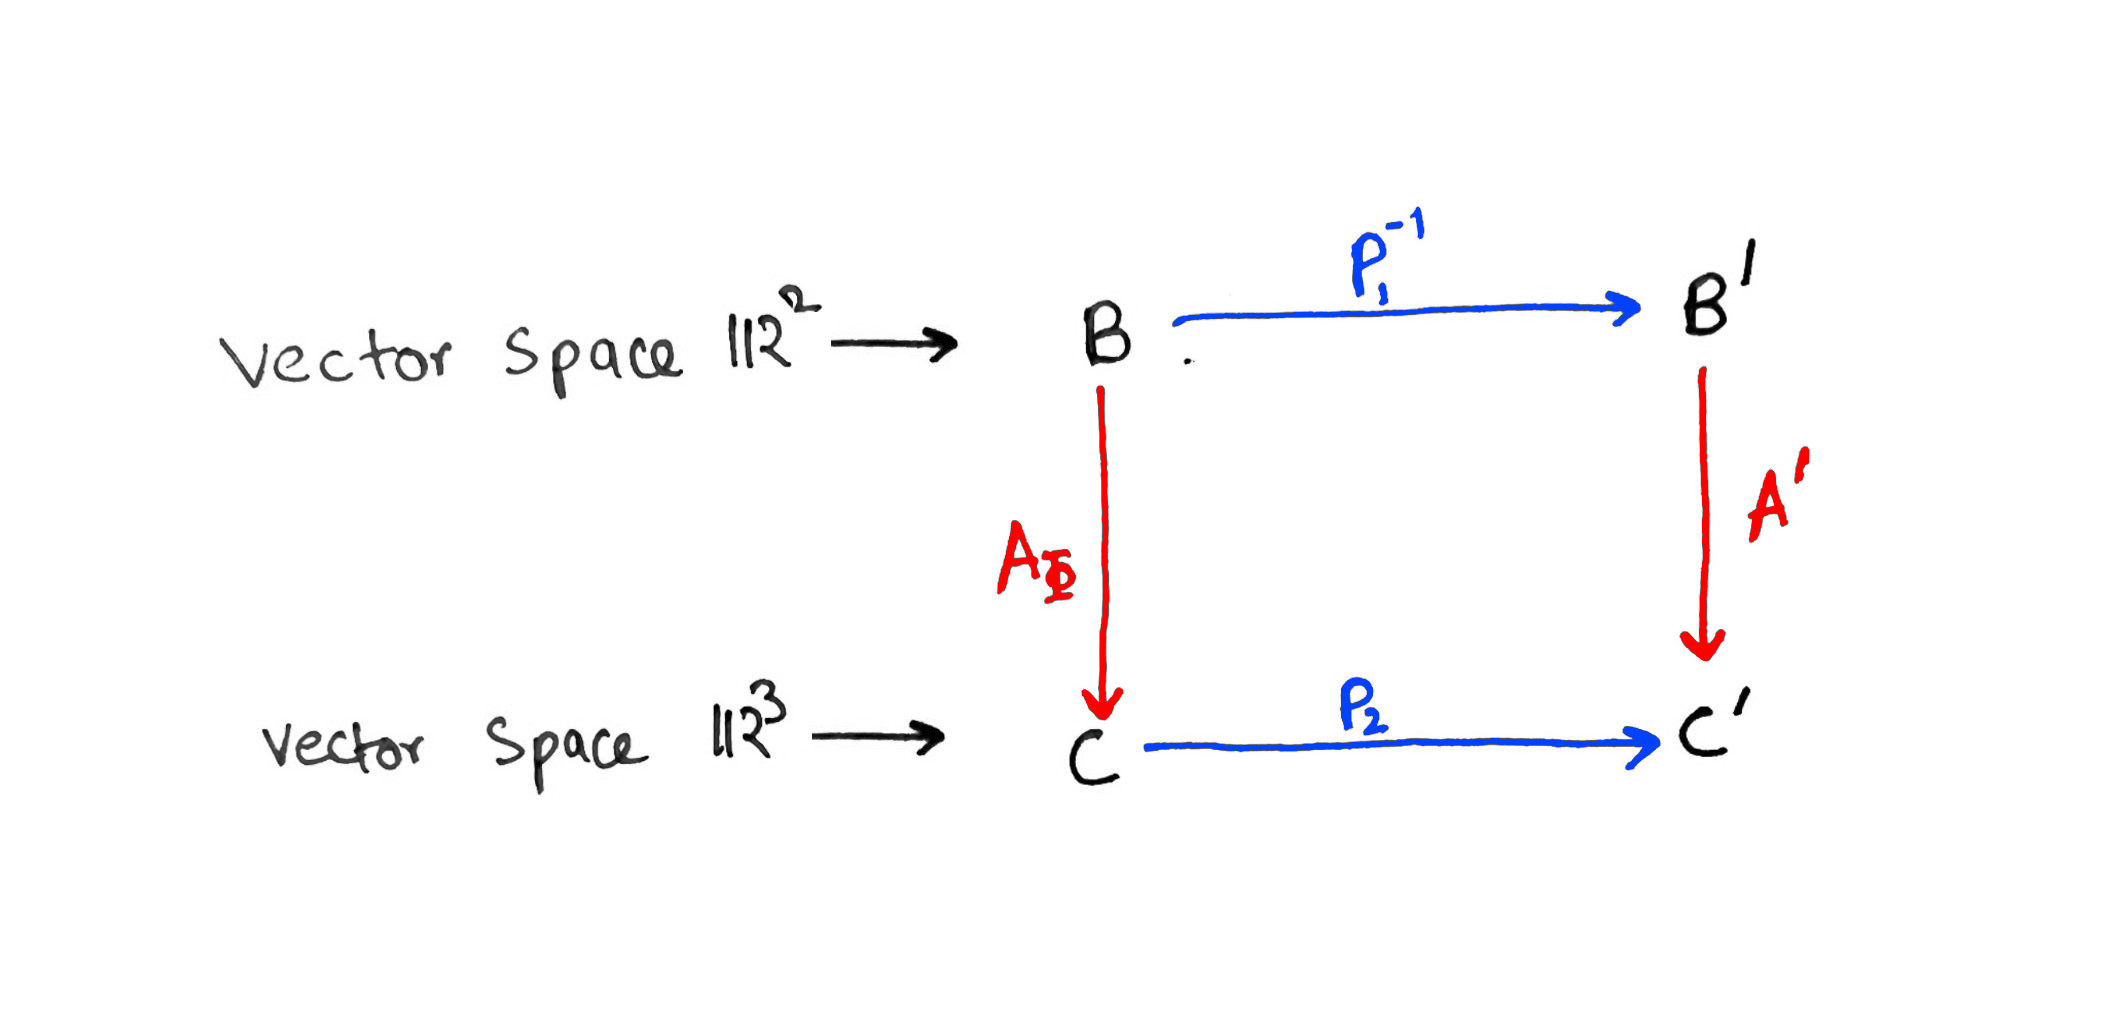 Vector Space ℝ² → B P₁⁻¹ B′
A_Φ A′
Vector Space ℝ³ → C P₂ C′